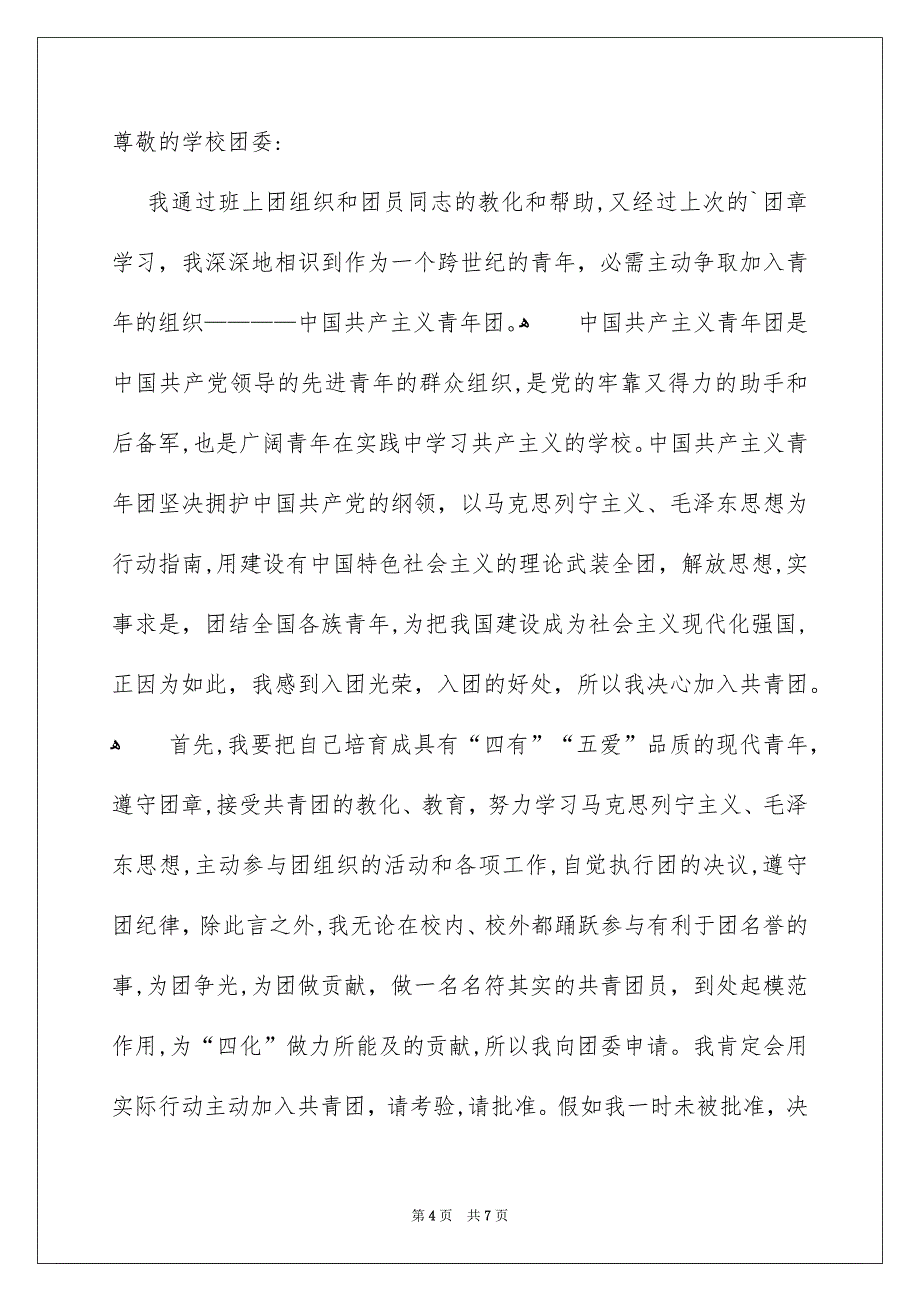 尊敬的学校团委:
我通过班上团组织和团员同志的教化和帮助,又经过上次的`团章
学习，我深深地相识到作为一个跨世纪的青年，必需主动争取加入青
年的组织————中国共产主义青年团。ﻫ 中国共产主义青年团是
中国共产党领导的先进青年的群众组织,是党的牢靠又得力的助手和
后备军,也是广阔青年在实践中学习共产主义的学校。中国共产主义青
年团坚决拥护中国共产党的纲领，以马克思列宁主义、毛泽东思想为
行动指南,用建设有中国特色社会主义的理论武装全团，解放思想,实
事求是，团结全国各族青年,为把我国建设成为社会主义现代化强国,
正因为如此，我感到入团光荣，入团的好处，所以我决心加入共青团。
ﻫ 首先,我要把自己培育成具有“四有”“五爱”品质的现代青年,
遵守团章,接受共青团的教化、教育，努力学习马克思列宁主义、毛泽
东思想,主动参与团组织的活动和各项工作,自觉执行团的决议,遵守
团纪律，除此言之外,我无论在校内、校外都踊跃参与有利于团名誉的
事,为团争光,为团做贡献，做一名名符其实的共青团员，到处起模范
作用,为“四化”做力所能及的贡献,所以我向团委申请。我肯定会用
实际行动主动加入共青团，请考验,请批准。假如我一时未被批准，决
第 4 页 共 7 页